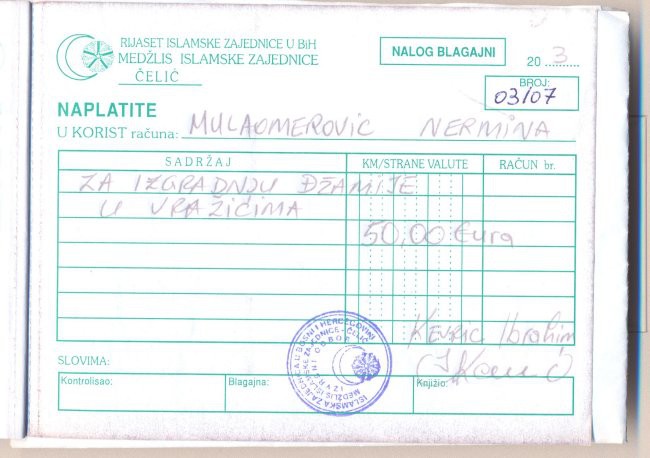 RIJASET ISLAMSKE ZAJEDNICE U BiH
MEDŽLIS ISLAMSKE ZAJEDNICE
ČELIĆ
NALOG BLAGAJNI
20 3
BROJ:
03/07
NAPLATITE
U KORIST računa: MULAOMEROVIC NERMINA
SADRŽAJ KM/STRANE VALUTE RAČUN br.
ZA IZGRADNJU DŽAMIJE
U VRAŽIĆIMA
50,00 Eura
Kevric Ibrahim
SLOVIMA:
Kontrolisao: Blagajna: Knjižio:
ISLAMSKA ZAJEDNICA U BOSNI I HERCEGOVINI
MEDŽLIS ISLAMSKE ZAJEDNICE - ČELIĆ
IZVRŠNI ODBOR